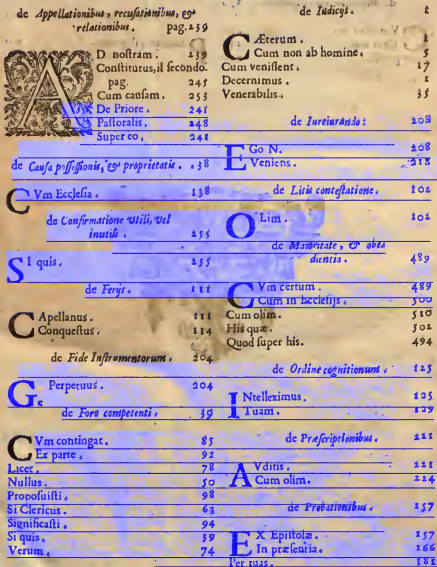 de Appellationibus, recusationibus, &
relationibus. pag. 239
AD nostram. 239
Constitutus, il secondo.
pag. 245
Cum causam. 253
De Priore. 241
Pastoralis. 248
Super eo. 241
de Causa possessionis, & proprietatis. 138
CVm Ecclesia. 138
de Confirmatione utili, vel
inutili. 255
SI quis. 255
de Ferijs. 111
CApellanus. 111
Conquestus. 114
de Fide Instrumentorum. 204
Perpetuus. 204
de Foro competenti. 39
CVm contingat. 85
Ex parte. 92
Licet. 78
Nullus. 50
Proposuisti. 98
Si Clericus. 63
Significasti. 94
Si quis. 39
Verum. 74
de Iudicijs. 2
CÆterum. 2
Cum non ab homine. 5
Cum venissent. 17
Decernimus. 2
Venerabilis. 35
de Iureiurando: 208
EGo N. 208
Veniens. 218
de Litis contestatione. 102
OLim. 102
de Maioritate, & obe
dientia. 489
CVm certum. 489
Cum in Ecclesijs. 500
Cum olim. 510
His quæ. 502
Quod super his. 494
de Ordine cognitionum. 125
INtelleximus. 125
Tuam. 129
de Præscriptionibus. 221
AVditis. 221
Cum olim. 224
de Probationibus. 157
EX Epistolæ. 157
In præsentia. 166
Per tuas. 181